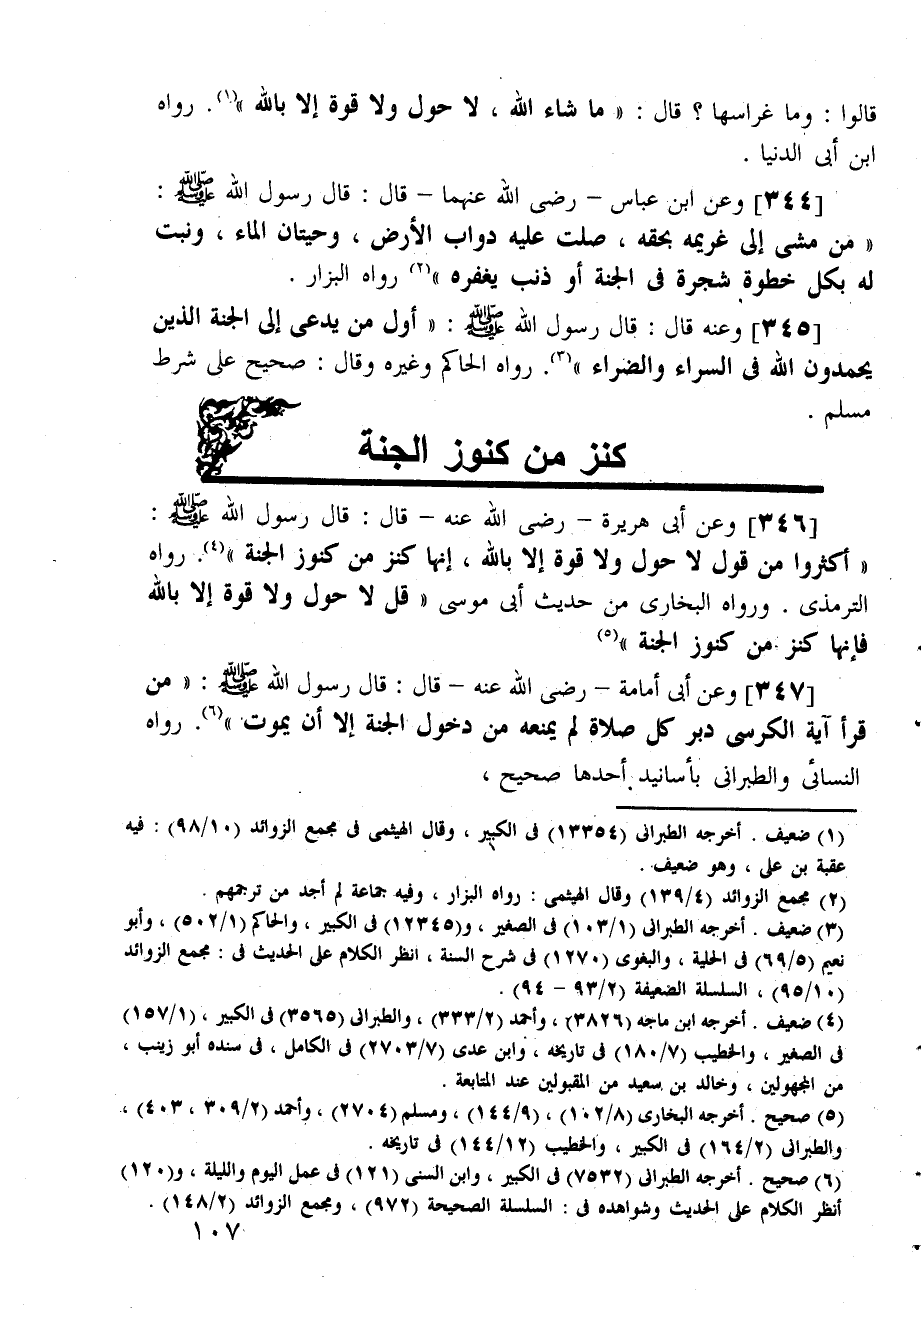 قالوا : وما غراسها ؟ قال : « ما شاء الله ، لا حول ولا قوة إلا بالله »(١). رواه
ابن أبى الدنيا .
[٣٤٤] وعن ابن عباس – رضى الله عنهما – قال : قال رسول الله ﷺ :
« من مشى إلى غريمه بحقه ، صلت عليه دواب الأرض ، وحيتان الماء ، ونبت
له بكل خطوة شجرة فى الجنة أو ذنب يغفره »(٢) رواه البزار .
[٣٤٥] وعنه قال : قال رسول الله ﷺ : « أول من يدعى إلى الجنة الذين
يحمدون الله فى السراء والضراء »(٣). رواه الحاكم وغيره وقال : صحيح على شرط
مسلم .
كنز من كنوز الجنة
[٣٤٦] وعن أبى هريرة – رضى الله عنه – قال : قال رسول الله ﷺ :
« أكثروا من قول لا حول ولا قوة إلا بالله ، إنها كنز من كنوز الجنة »(٤). رواه
الترمذى . ورواه البخارى من حديث أبى موسى « قل لا حول ولا قوة إلا بالله
فإنها كنز من كنوز الجنة »(٥)
[٣٤٧] وعن أبى أمامة – رضى الله عنه – قال : قال رسول الله ﷺ : « من
قرأ آية الكرسى دبر كل صلاة لم يمنعه من دخول الجنة إلا أن يموت »(٦). رواه
النسائى والطبرانى بأسانيد أحدها صحيح ،
(١) ضعيف . أخرجه الطبرانى (١٣٣٥٤) فى الكبير ، وقال الهيثمى فى مجمع الزوائد (٩٨/١٠) : فيه
عقبة بن على ، وهو ضعيف .
(٢) مجمع الزوائد (١٣٩/٤) وقال الهيثمى : رواه البزار ، وفيه جماعة لم أجد من ترجمهم .
(٣) ضعيف . أخرجه الطبرانى (١٠٣/١) فى الصغير ، و(١٢٣٤٥) فى الكبير ، والحاكم (٥٠٢/١) ، وأبو
نعيم (٦٩/٥) فى الحلية ، والبغوى (١٢٧٠) فى شرح السنة ، انظر الكلام على الحديث فى : مجمع الزوائد
(٩٥/١٠) ، السلسلة الضعيفة (٩٣/٢ – ٩٤) .
(٤) ضعيف . أخرجه ابن ماجه (٣٨٢٦) ، وأحمد (٣٣٣/٢) ، والطبرانى (٣٥٦٥) فى الكبير ، (١٥٧/١)
فى الصغير ، والخطيب (١٨٠/٧) فى تاريخه ، وابن عدى (٢٧٠٣/٧) فى الكامل ، فى سنده أبو زينب ،
من المجهولين ، وخالد بن سعيد من المقبولين عند المتابعة .
(٥) صحيح . أخرجه البخارى (١٠٢/٨) ، (١٤٤/٩) ، ومسلم (٢٧٠٤) ، وأحمد (٣٠٩/٢ ، ٤٠٣) ،
والطبرانى (١٦٤/٢) فى الكبير ، والخطيب (١٤٤/١٢) فى تاريخه .
(٦) صحيح . أخرجه الطبرانى (٧٥٣٢) فى الكبير ، وابن السنى (١٢١) فى عمل اليوم والليلة ، و(١٢٠)
أنظر الكلام على الحديث وشواهده فى : السلسلة الصحيحة (٩٧٢) ، ومجمع الزوائد (١٤٨/٢) .
١٠٧